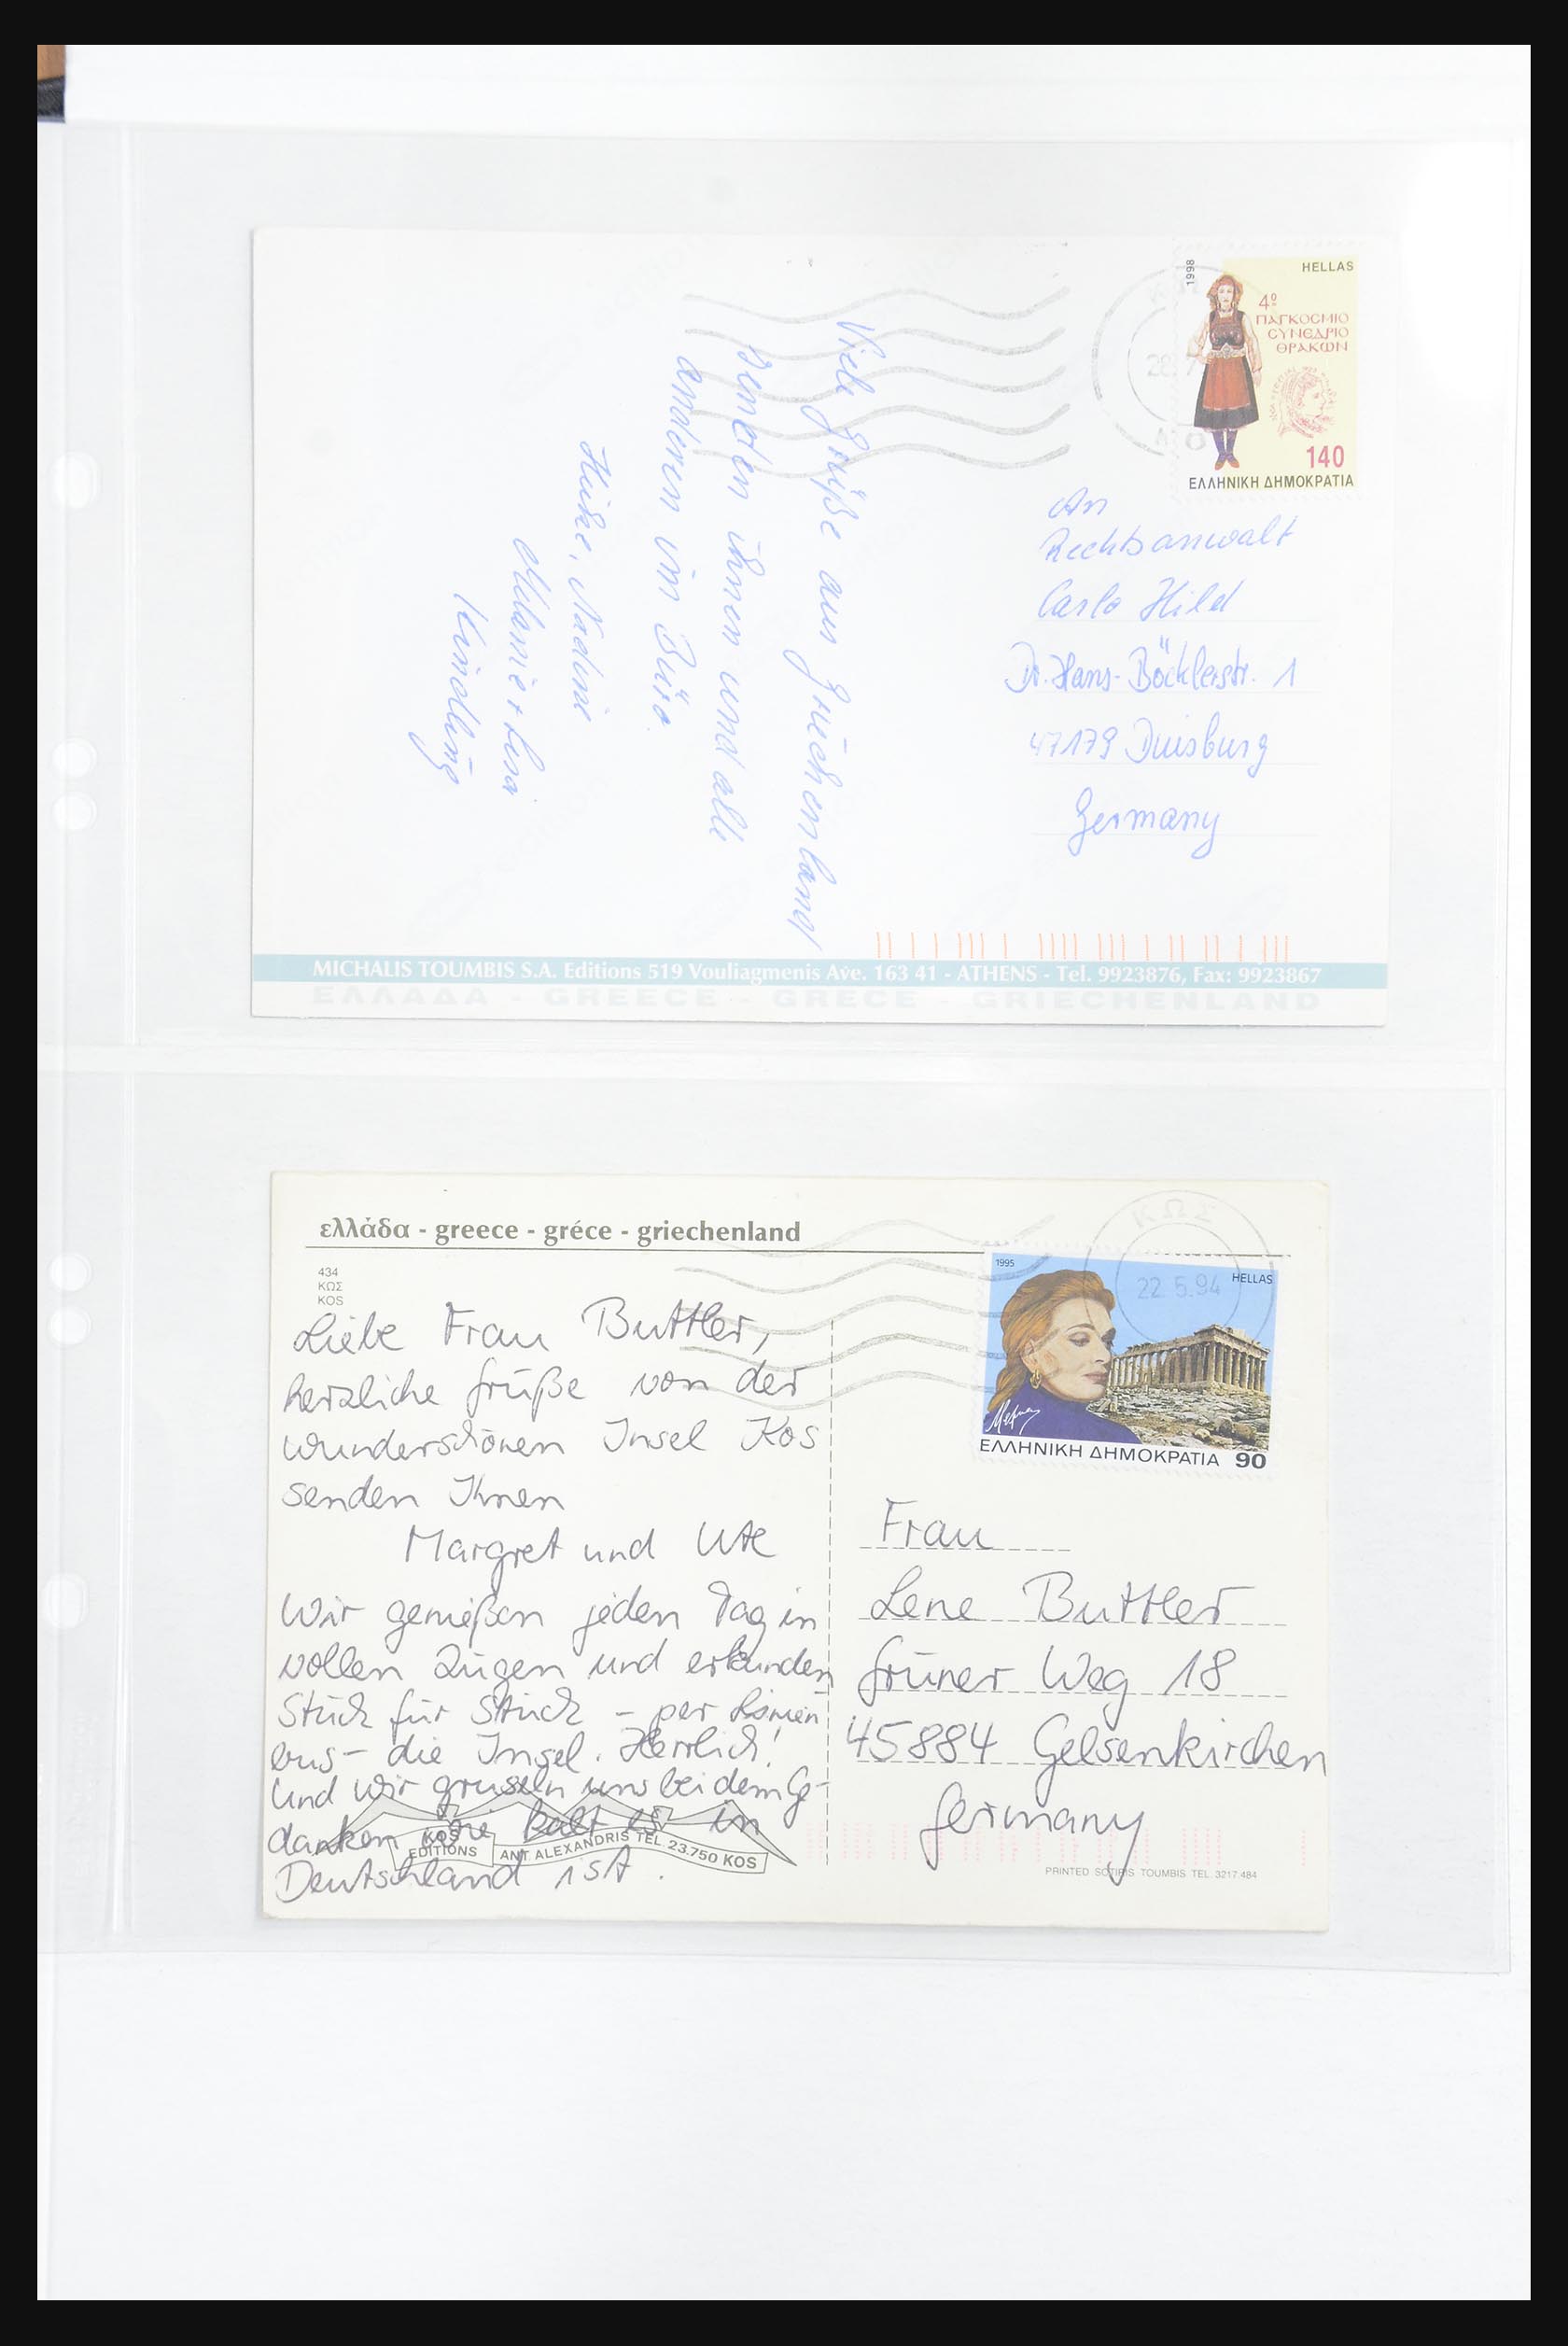 1998
HELLAS
4º
ΠΑΓΚΟΣΜΙΟ
ΣΥΝΕΔΡΙΟ
ΘΡΑΚΩΝ
140
ΕΛΛΗΝΙΚΗ ΔΗΜΟΚΡΑΤΙΑ
Viele Grüße aus Griechenland
senden ihnen und alle
anderen im Büro.
Heike, Nadine
Melanie + Lisa
Kindling
An
Rechtsanwalt
Carlo Hild
Dr. Hans-Böcklerstr. 1
47179 Duisburg
Germany
MICHALIS TOUMBIS S.A. Editions 519 Vouliagmenis Ave. 163 41 - ATHENS - Tel. 9923876, Fax: 9923867
ΕΛΛΑΔΑ - GREECE - GRECE - GRIECHENLAND
ελλάδα - greece - gréce - griechenland
434
ΚΩΣ
KOS
ΚΩΣ
22.5.94
1995
HELLAS
ΕΛΛΗΝΙΚΗ ΔΗΜΟΚΡΑΤΙΑ 90
Liebe Frau Buttler,
herzliche Grüße von der
wunderschönen Insel Kos
senden Ihnen
Margret und Ute
Wir genießen jeden Tag in
vollen Zügen und erkunden
Stück für Stück - per Linien
bus - die Insel. Herrlich!
Und wir gruseln uns bei dem Ge-
danken wie kalt es in
Deutschland ist.
Frau
Lene Buttler
Grüner Weg 18
45884 Gelsenkirchen
Germany
KOS
EDITIONS
ANT ALEXANDRIS TEL. 23.750 KOS
PRINTED SOTIRIS TOUMBIS TEL. 3217.484